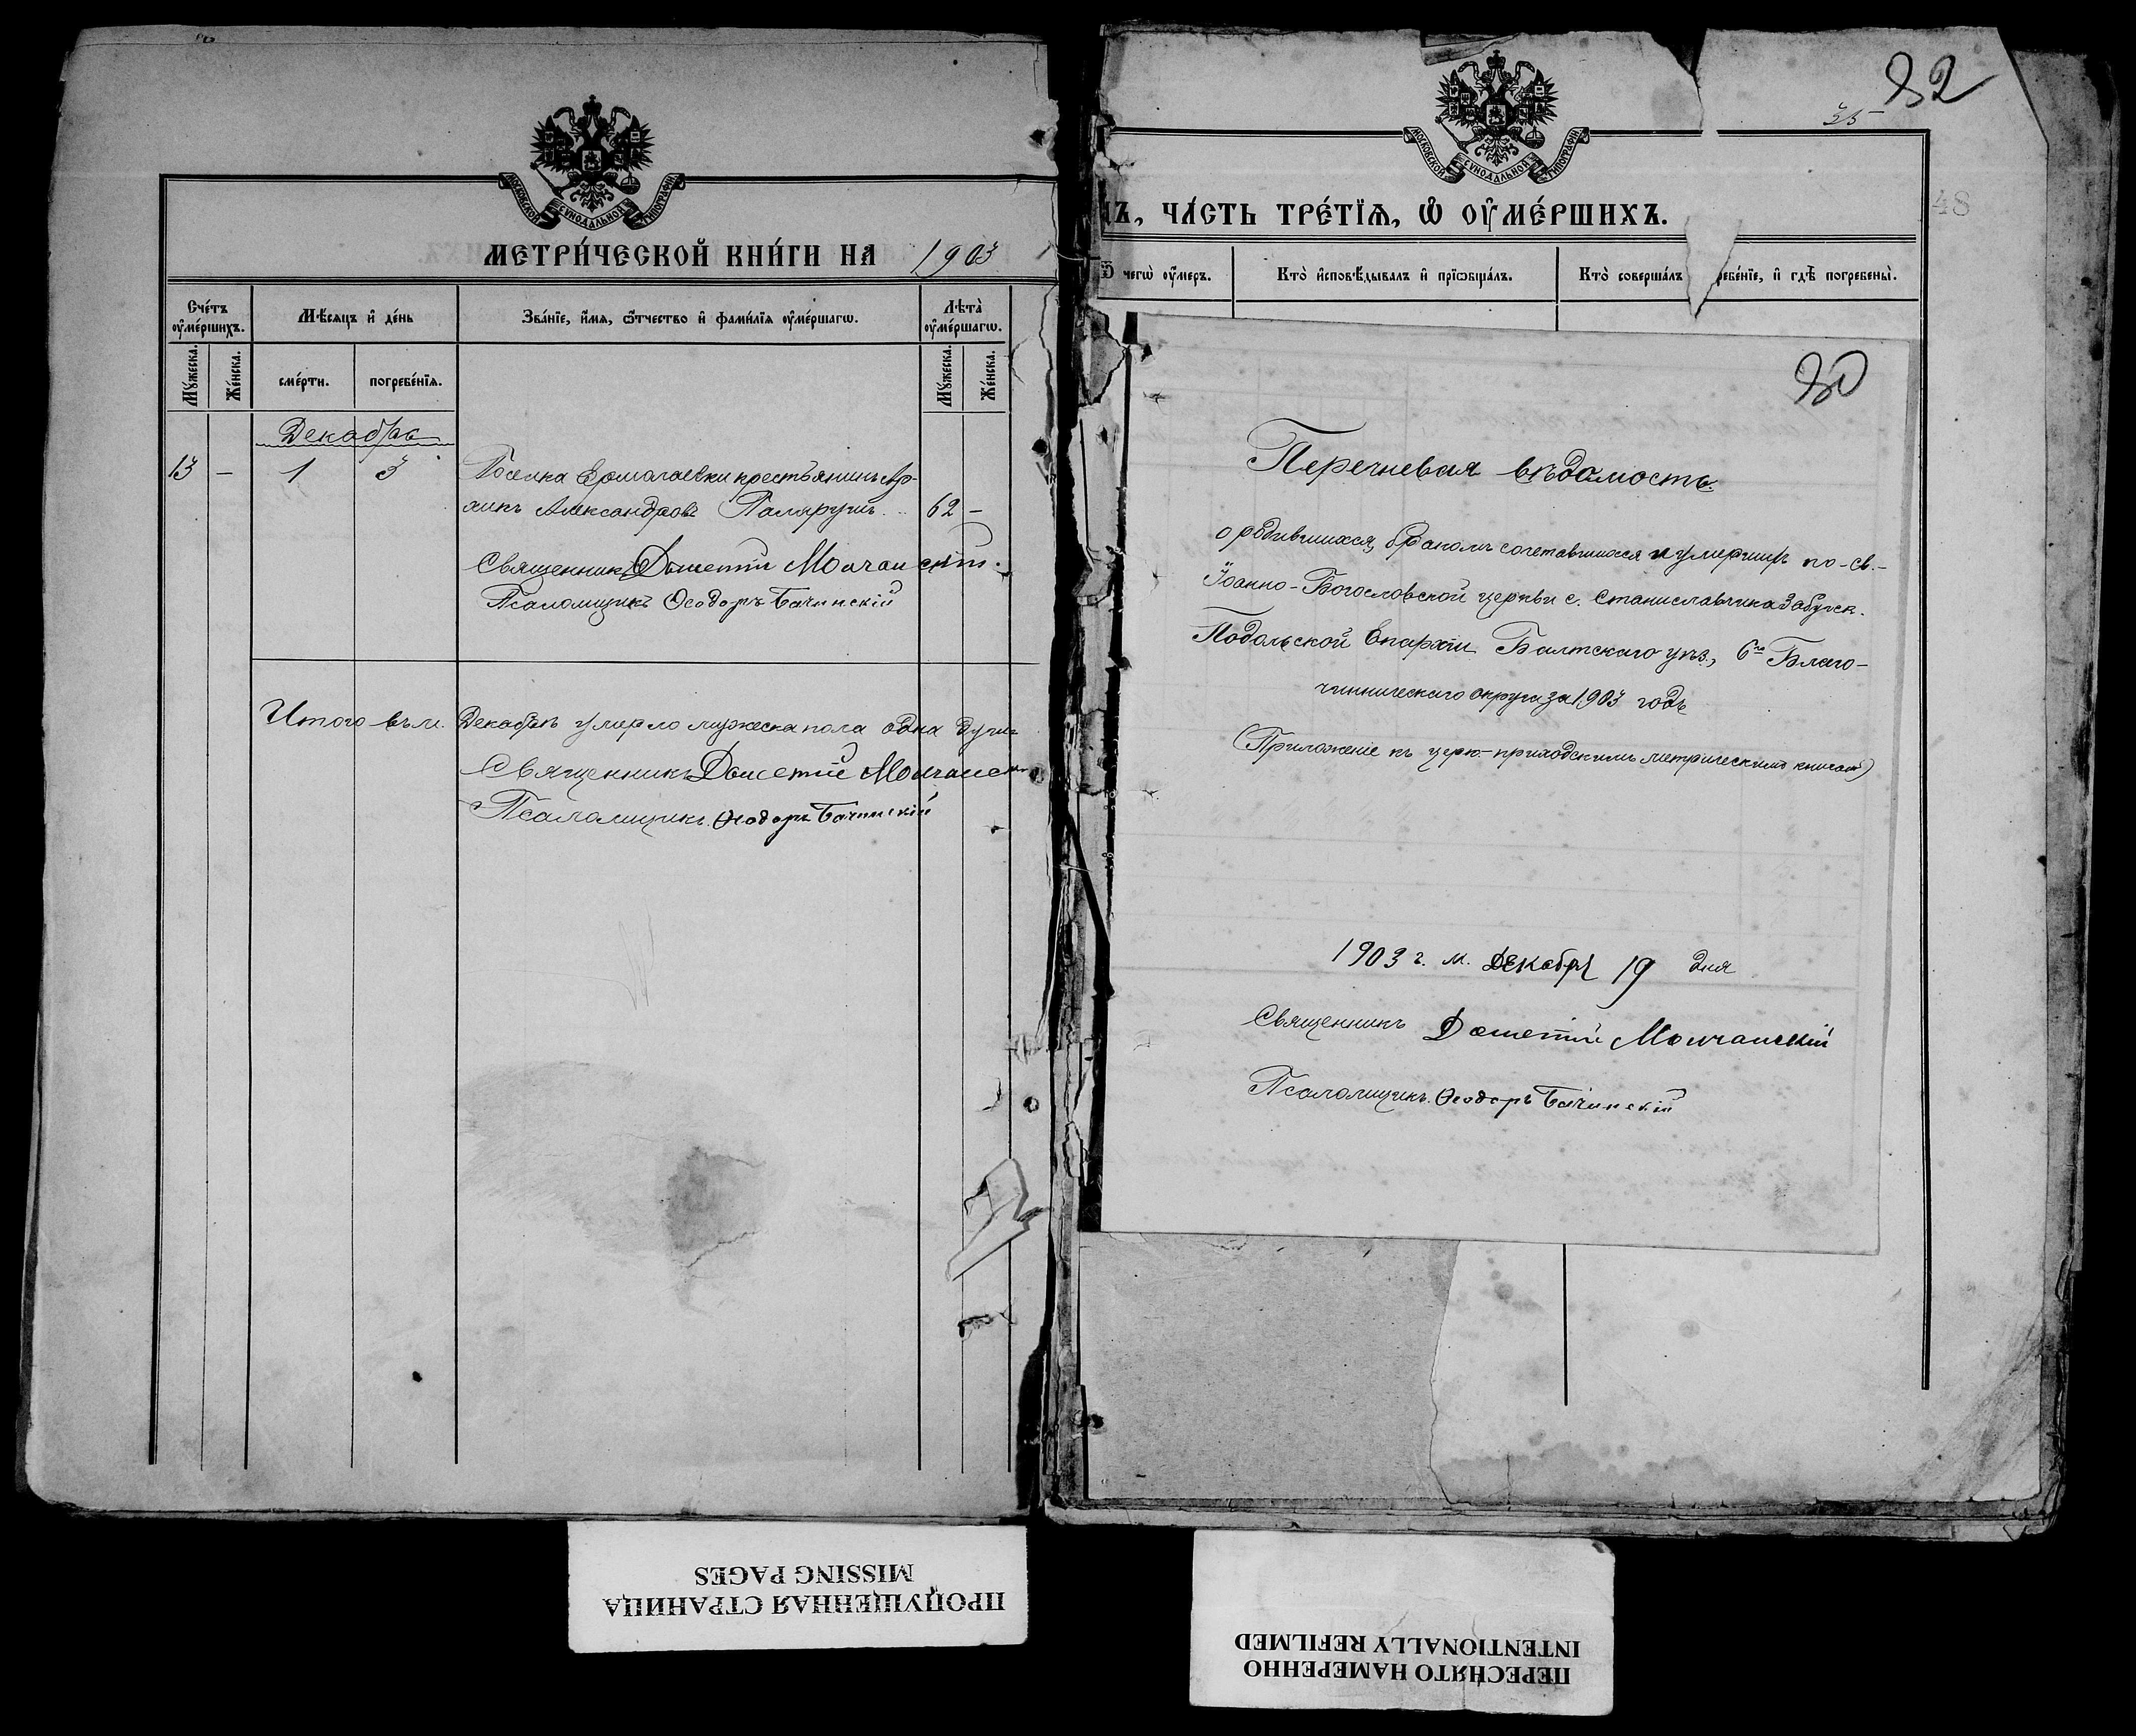 МОСКОВСКОЙ СѴНОДАЛЬНОЙ ТИПОГРАФІИ
МЕТРИ́ЧЕСКОЙ КНИ́ГИ НА 1903
Сче́тъ ᲂу҆ме́ршихъ.
Мѣ́сяцъ и҆ де́нь
Зва́нїе, и҆́мѧ, ѻ҆́тчество и҆ фами́лїѧ ᲂу҆ме́ршагѡ.
Лѣта̀ ᲂу҆ме́ршагѡ.
Мꙋ́жеска.
Же́нска.
сме́рти.
погребе́нїѧ.
Мꙋ́жеска.
Же́нска.
Декабрь
13 — 1 3 Поселка Ермолаевки крестьянинъ
Александровъ 62 —
Священникъ Дометій Молчанскій.
Псаломщикъ Ѳеодоръ Бачинскій
Итого въ м. Декабрѣ умерло мужеска пола одна душа
Священникъ Дометій Молчанскій
Псаломщикъ Ѳеодоръ Бачинскій
82
35
МОСКОВСКОЙ СѴНОДАЛЬНОЙ ТИПОГРАФІИ
48
ДЪ, ЧА́СТЬ ТРЕ́ТЇѦ, Ѽ ОУ҆МЕ́РШИХЪ.
Ѿ чегѡ̀ ᲂу҆́меръ.
Кто̀ и҆сповѣ́дывалъ и҆ прїѡбща́лъ.
Кто̀ соверша́лъ ребе́нїе, и҆ гдѣ̀ погребены̀.
80
Перечневая вѣдомость
о родившихся, бракомъ сочетавшихся и умершихъ по св.-
Іоанно-Богословской церкви с. Станиславчика Забугск.
Подольской Епархіи Балтскаго уѣз., 6го Благо-
чинническаго округа за 1903 годъ
(Приложеніе къ церк.-приходскимъ метрическимъ книгамъ)
1903 г. м. Декабря 19 дня
Священникъ Дометій Молчанскій
Псаломщикъ Ѳеодоръ Бачинскій
ПРОПУЩЕННАЯ СТРАНИЦА
MISSING PAGES
ПЕРЕСНЯТО НАМЕРЕННО
INTENTIONALLY REFILMED